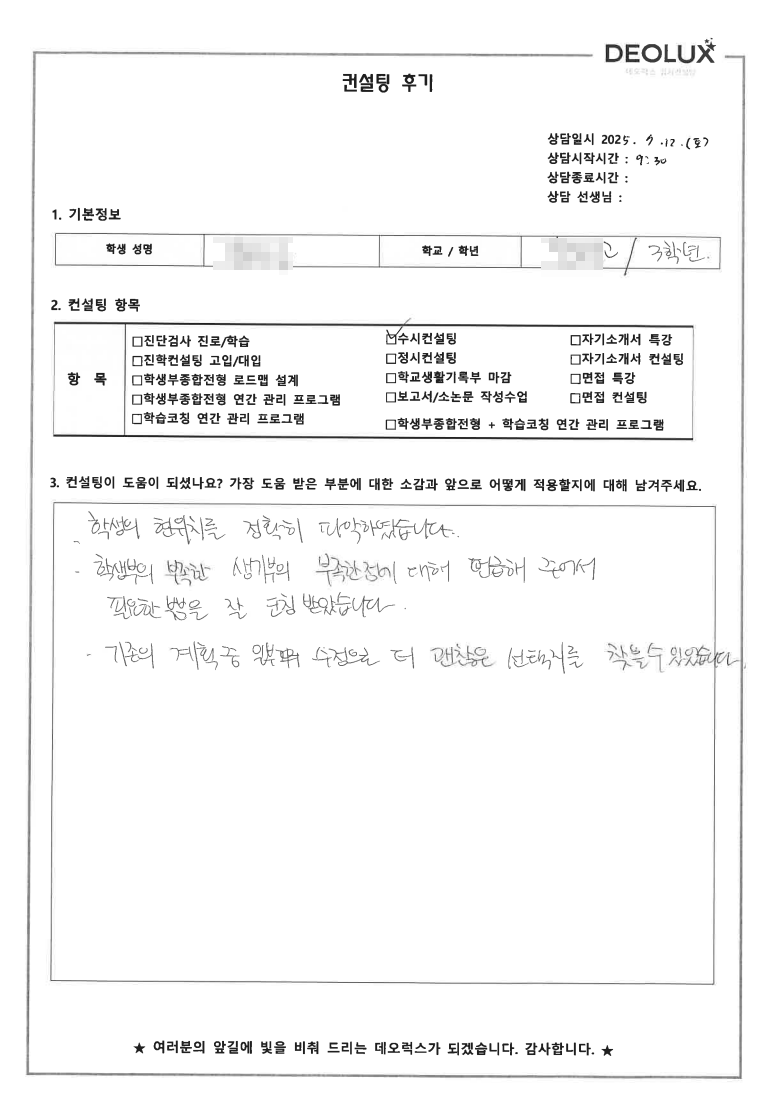 DEOLUX
컨설팅 후기
상담일시 2025. 7.12.(토)
상담시작시간 : 9:30
상담종료시간 :
상담 선생님 :
1. 기본정보
학생 성명 학교 / 학년 고 / 3학년.
2. 컨설팅 항목
항 목
□진단검사 진로/학습
□진학컨설팅 고입/대입
□학생부종합전형 로드맵 설계
□학생부종합전형 연간 관리 프로그램
□학습코칭 연간 관리 프로그램
☑수시컨설팅
□정시컨설팅
□학교생활기록부 마감
□보고서/소논문 작성수업
□학생부종합전형 + 학습코칭 연간 관리 프로그램
□자기소개서 특강
□자기소개서 컨설팅
□면접 특강
□면접 컨설팅
3. 컨설팅이 도움이 되셨나요? 가장 도움 받은 부분에 대한 소감과 앞으로 어떻게 적용할지에 대해 남겨주세요.
- 학생의 현위치를 정확히 파악하였습니다.
- 학생부의 부족한 생기부의 부족한점에 대해 언급해 주어서
필요한 부분을 잘 코칭 받았습니다.
- 기존의 계획 중 일부 수정으로 더 괜찮은 선택지를 찾을 수 있었습니다.
★ 여러분의 앞길에 빛을 비춰 드리는 데오럭스가 되겠습니다. 감사합니다. ★